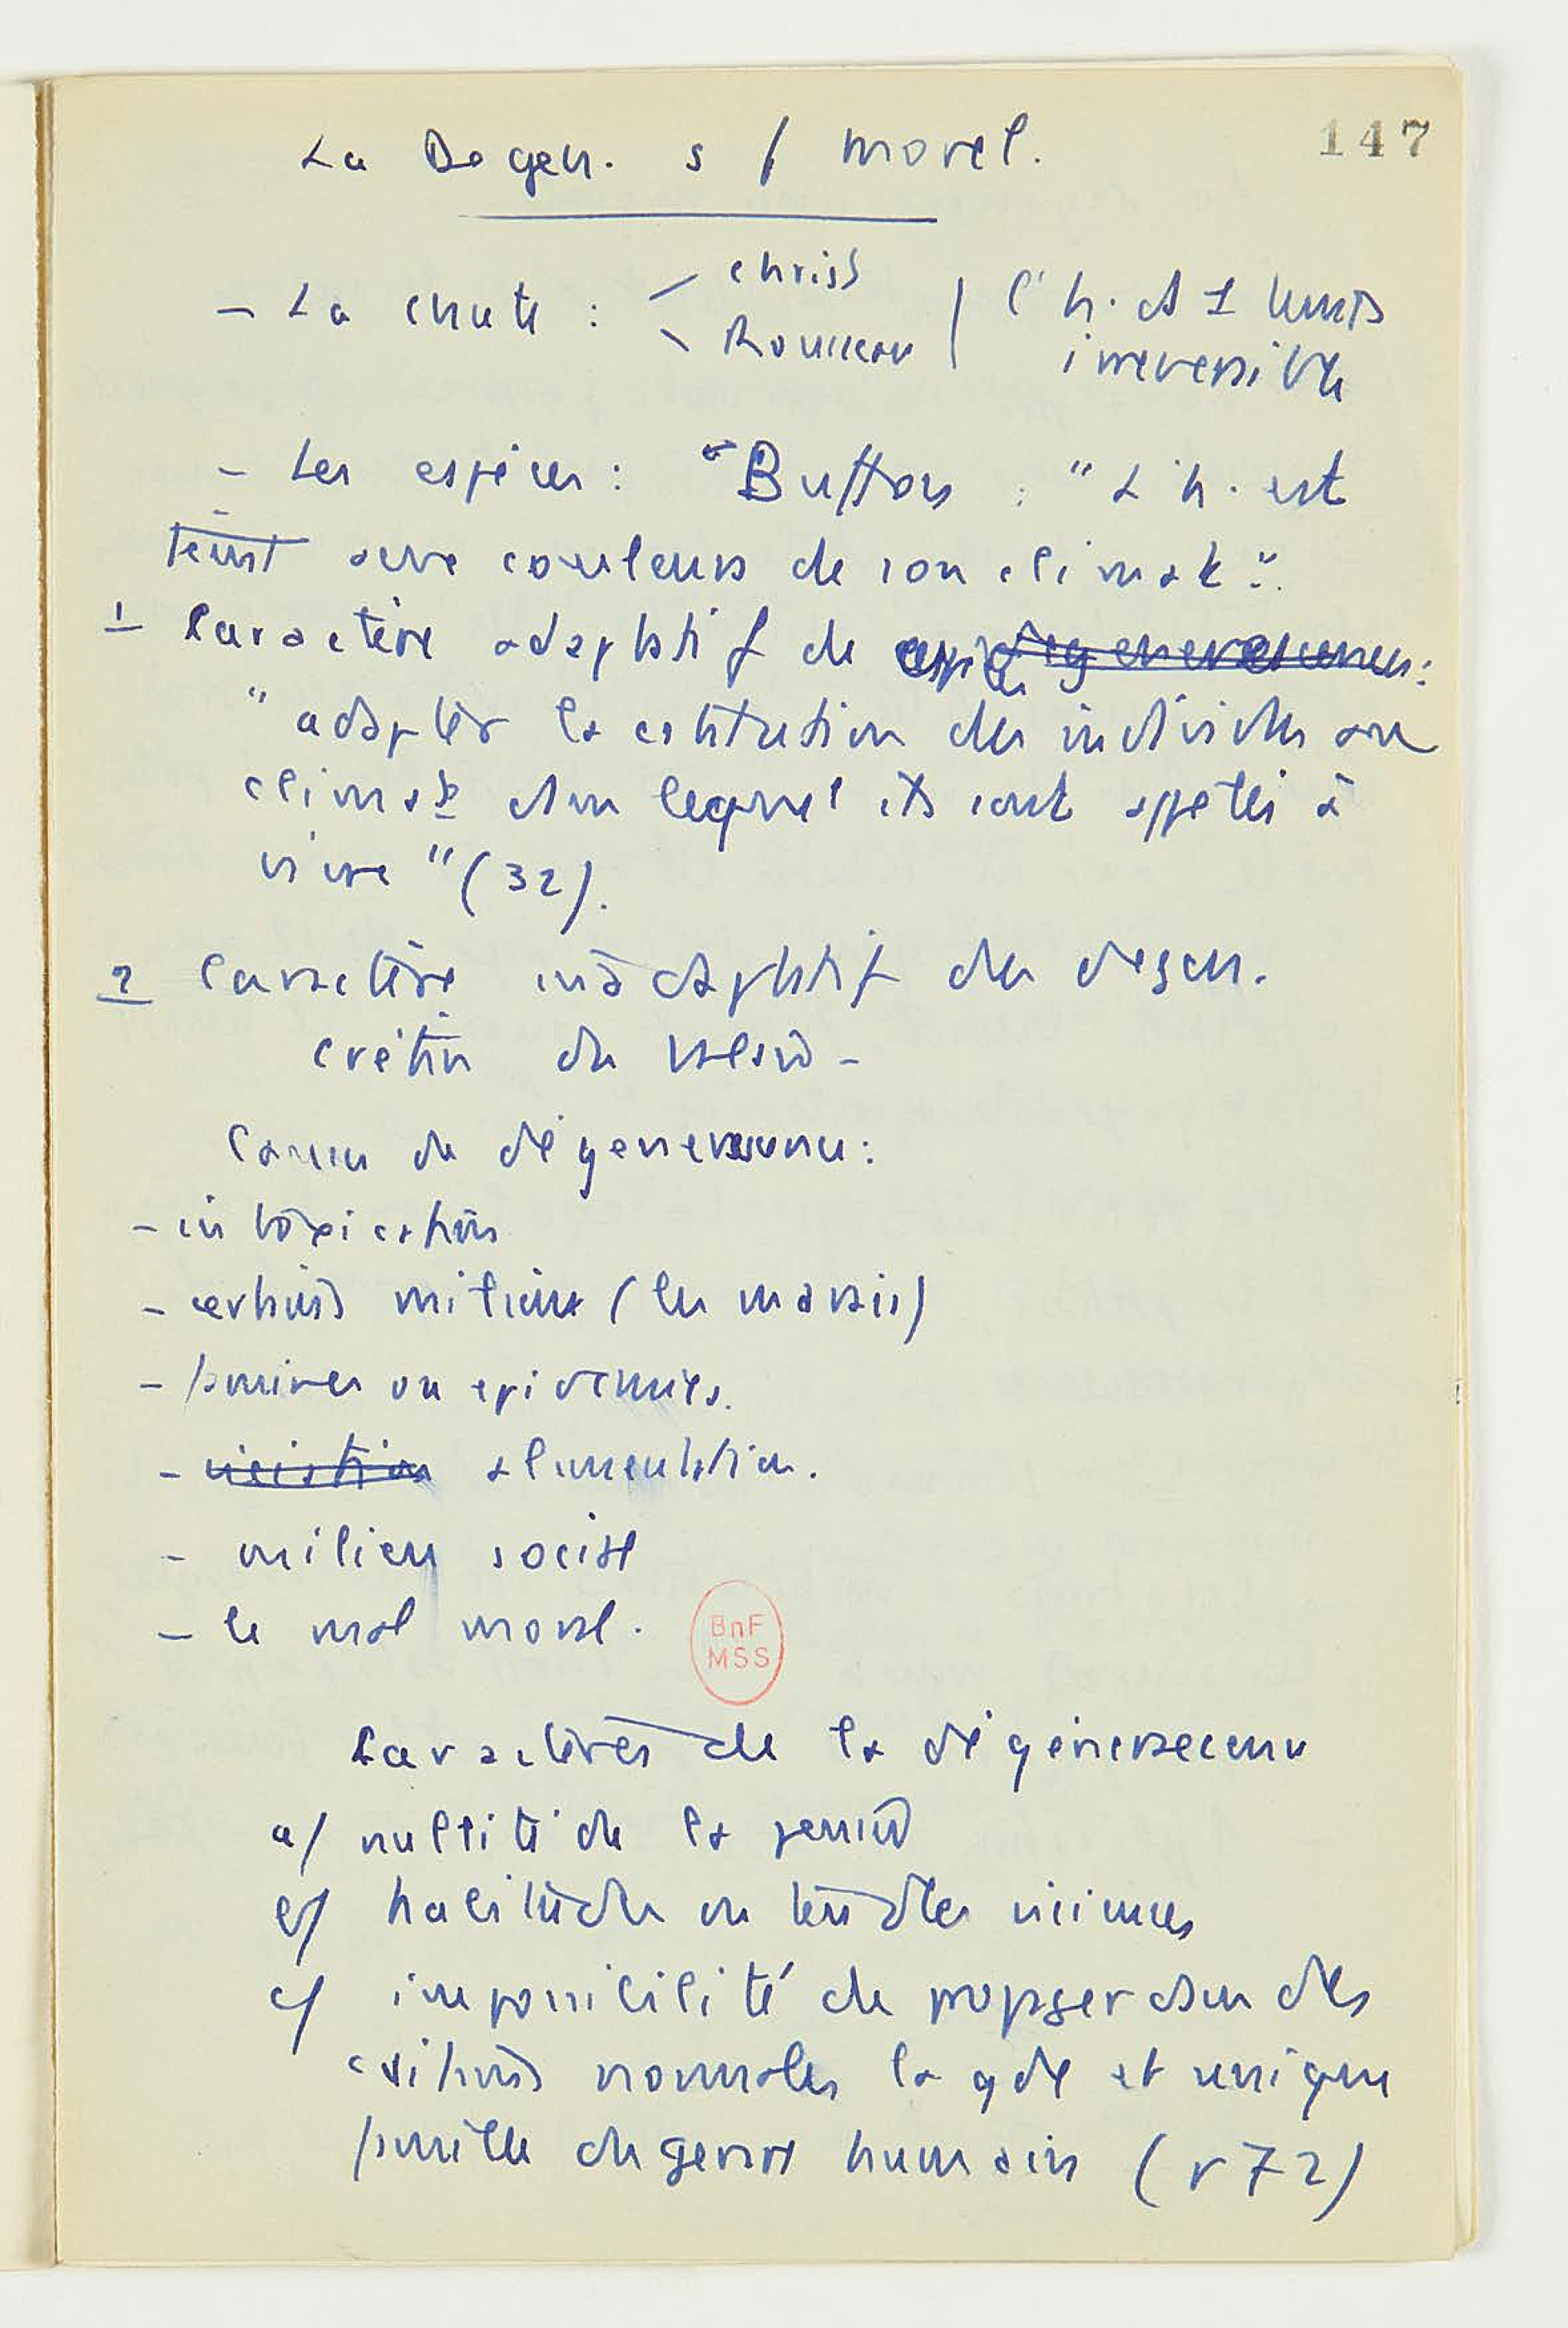 147
La Degen. s/ Morel.
- La chute : christ
Rousseau
l'h. ds 1 temps
irreversible
- Les espèces : Buffon : "L'h. est
teint aux couleurs de son climat".
1 Caractère adaptatif de espèces degenerescence :
"adapter la cstitution des individus au
climat ds lequel ils sont appelés à
vivre" (32).
2 Caractère inadaptatif des degen.
crétin du Valais -
Causes de dégenerescence :
- intoxications
- certains milieux (les marais)
- famines ou epidemies.
- viciation alimentation.
- milieu social
- le mal moral.
BnF
MSS
Caractères de la dégénerescence
a/ nullité de la pensée
b/ habitudes ou tendces vicieuses
c/ impossibilité de propager dans des
cditions normales la gde et unique
famille du genre humain (p 72)